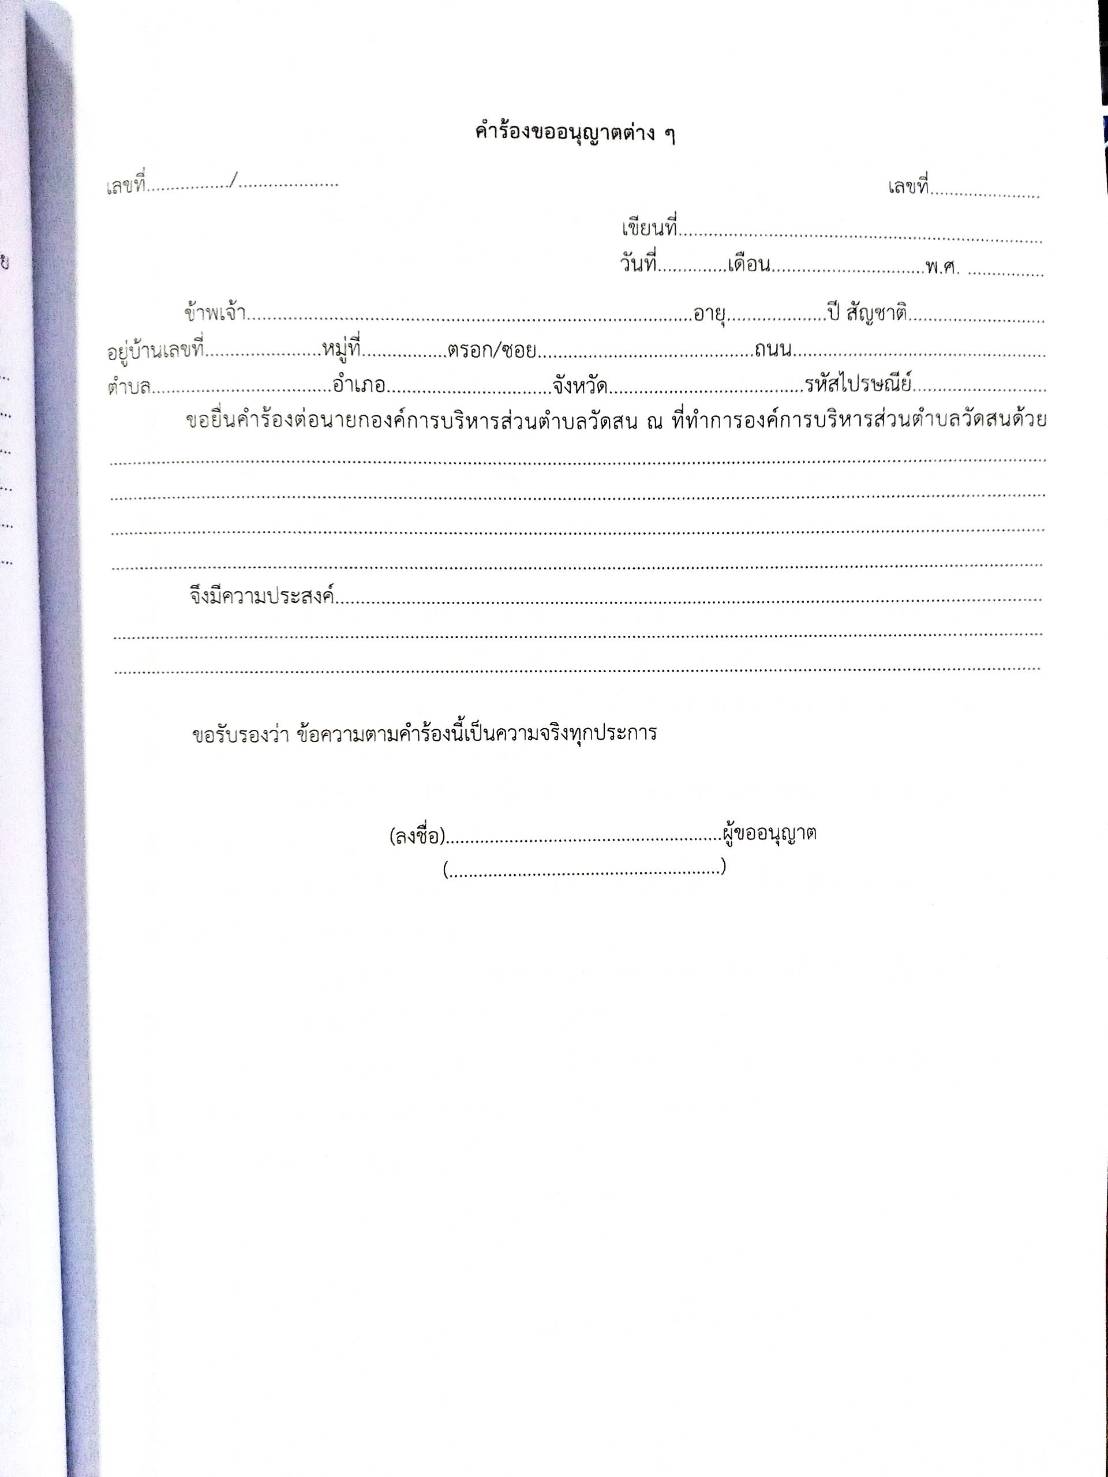 คำร้องขออนุญาตต่าง ๆ
เลขที่................/.................... เลขที่......................
เขียนที่..........................................................................
วันที่..............เดือน...............................พ.ศ. ...............
ข้าพเจ้า..........................................................................................อายุ....................ปี สัญชาติ............................
อยู่บ้านเลขที่........................หมู่ที่.................ตรอก/ซอย............................................ถนน...................................................
ตำบล....................................อำเภอ.................................จังหวัด.......................................รหัสไปรษณีย์...........................
ขอยื่นคำร้องต่อนายกองค์การบริหารส่วนตำบลวัดสน ณ ที่ทำการองค์การบริหารส่วนตำบลวัดสนด้วย
จึงมีความประสงค์................................................................................................................................................
ขอรับรองว่า ข้อความตามคำร้องนี้เป็นความจริงทุกประการ
(ลงชื่อ)........................................................ผู้ขออนุญาต
(.......................................................)